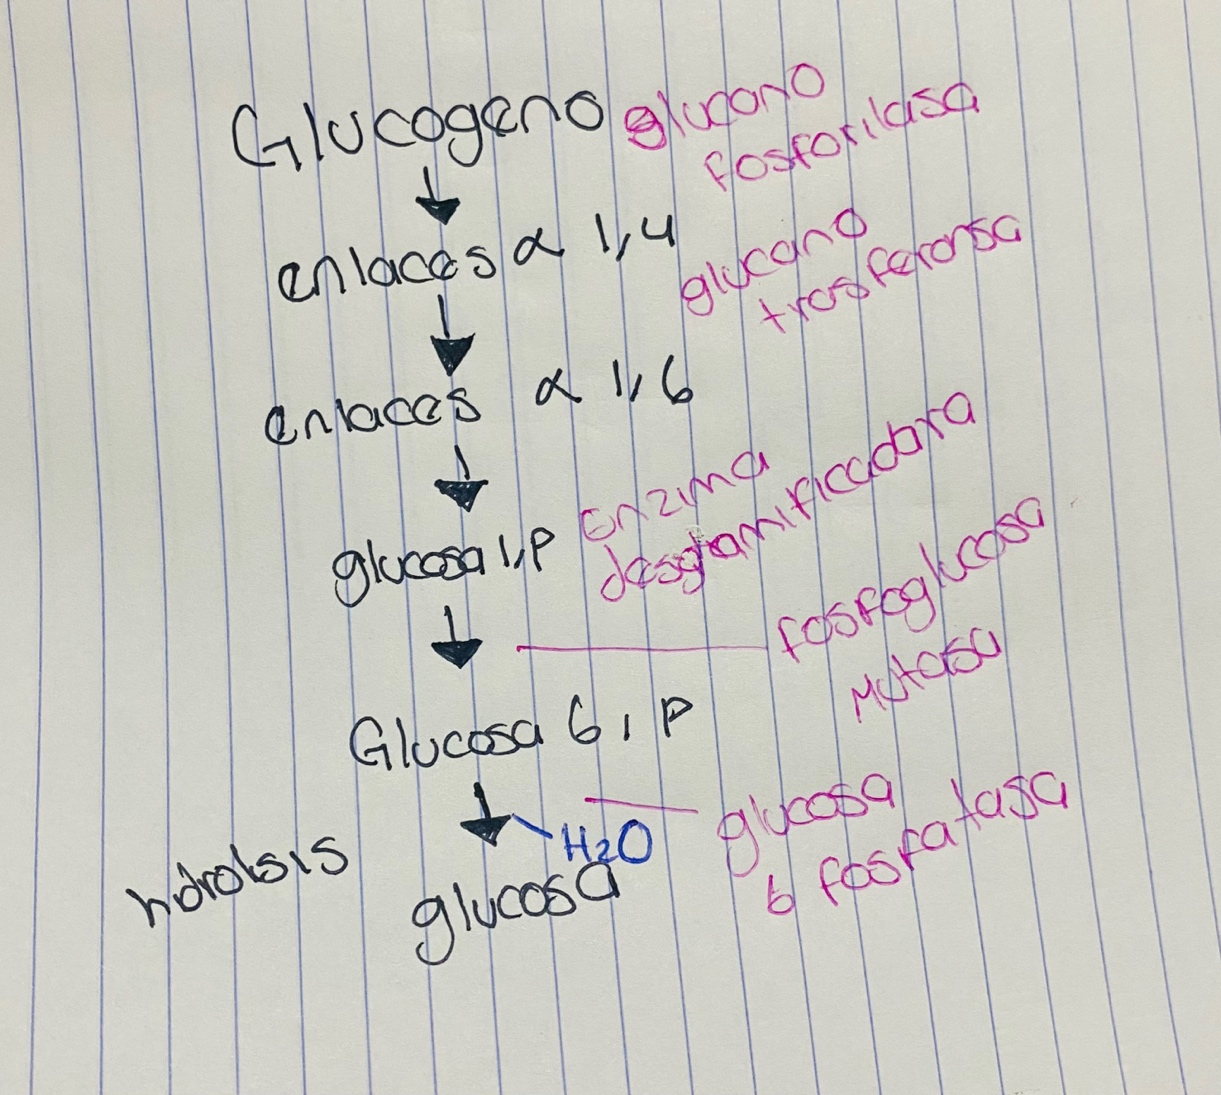 Glucogeno glucano
fosforilasa
enlaces α 1,4
glucano
trasferansa
enlaces α 1,6
Enzima
desgramificadora
glucosa 1,P
fosfoglucosa
mutasa
Glucosa 6, P
glucosa
6 fosfatasa
H2O
hidrolsis
glucosa